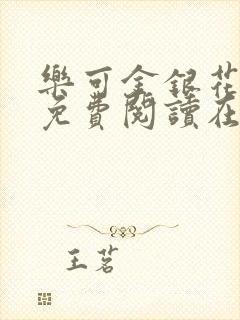 樂可金銀花
免費閱讀在
王茗